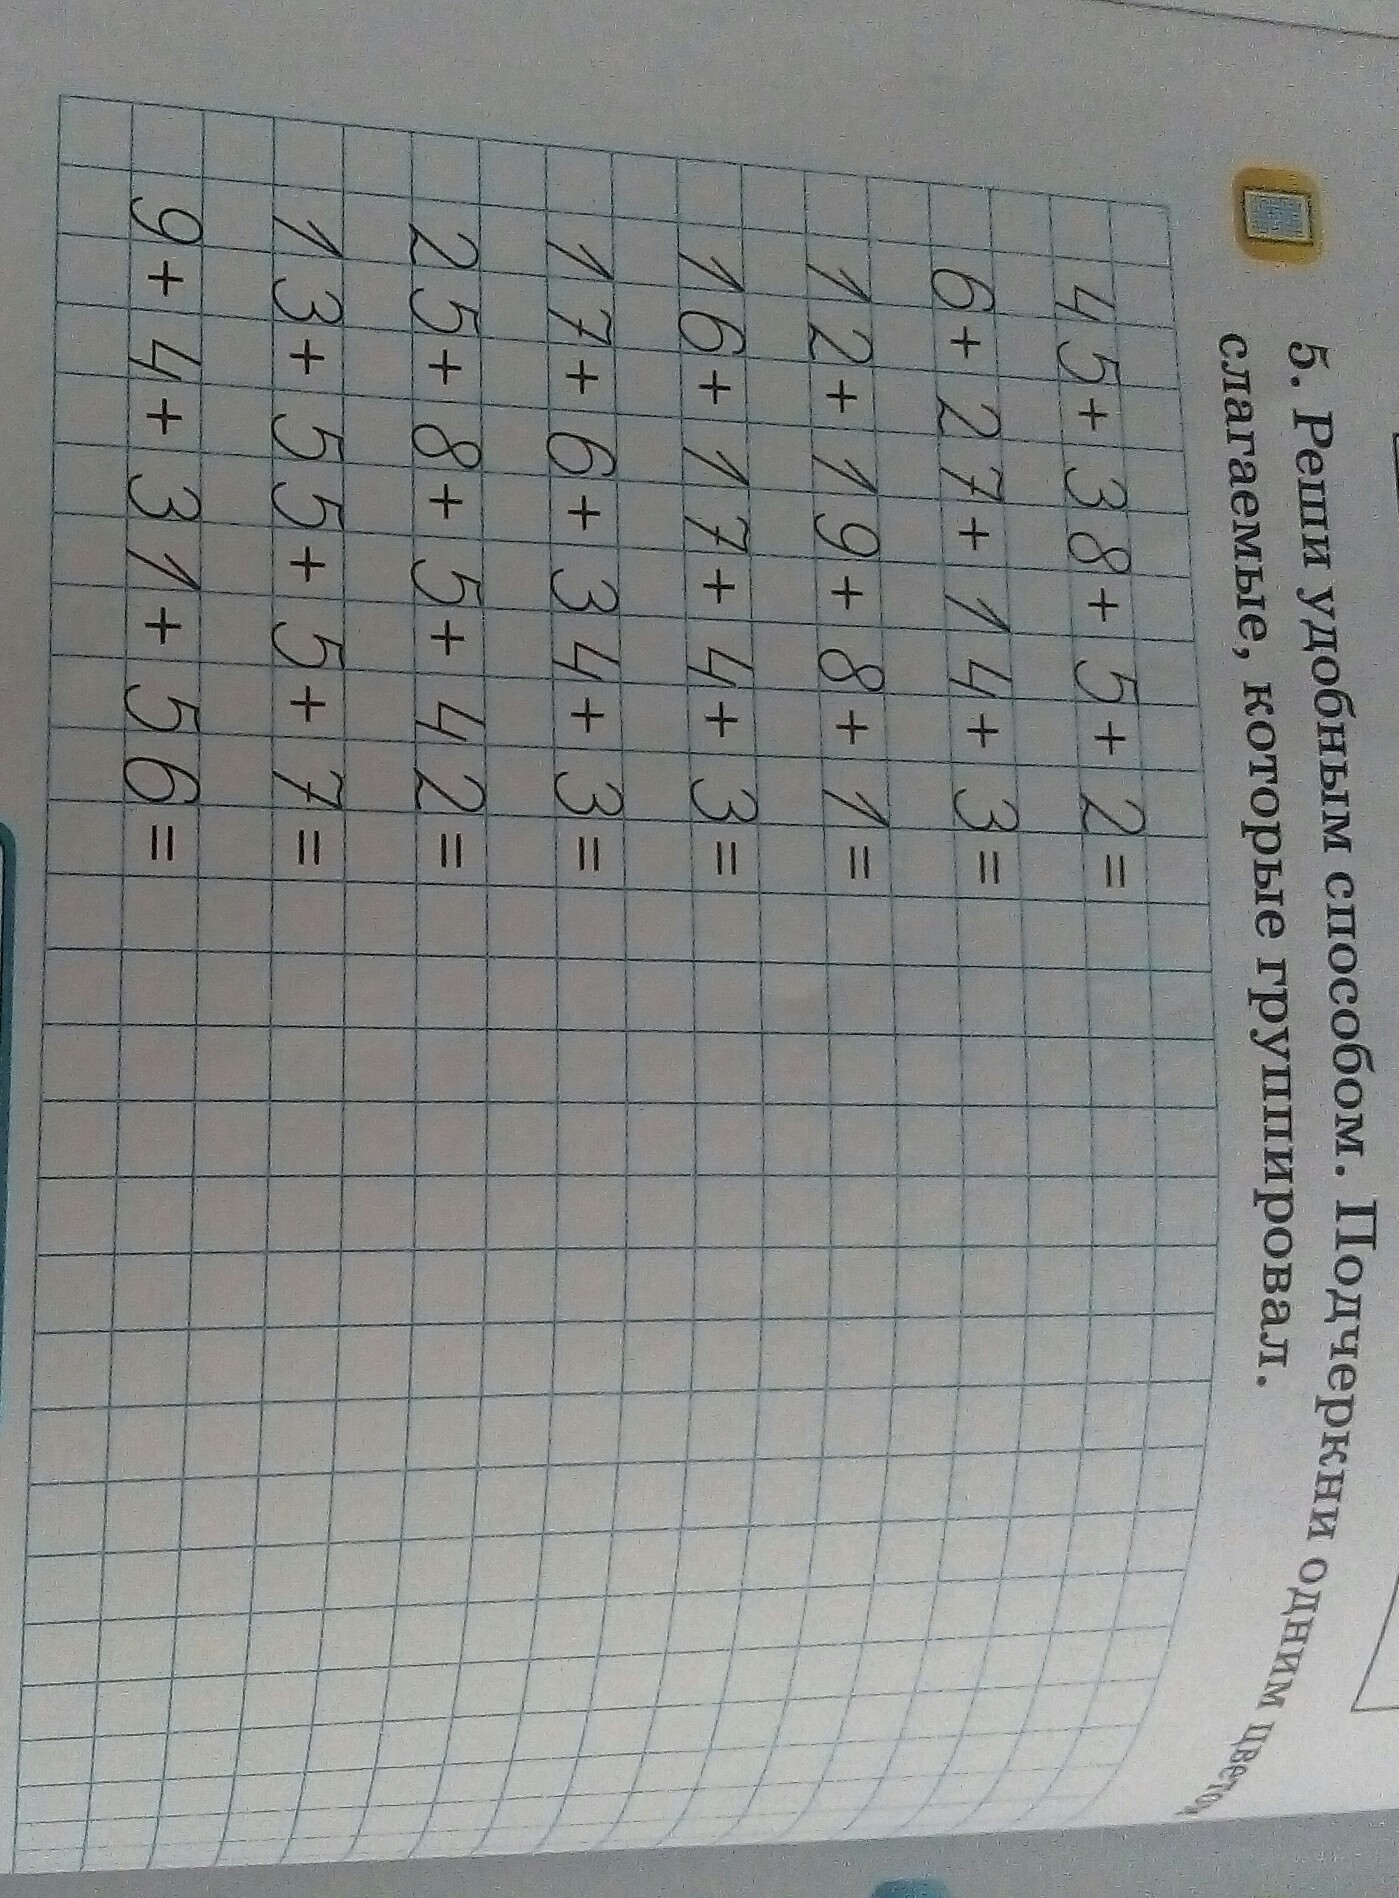 5. Реши удобным способом. Подчеркни одним цветом
слагаемые, которые группировал.
45+38+5+2=
6+27+14+3=
12+19+8+1=
16+17+4+3=
17+6+34+3=
25+8+5+42=
13+55+5+7=
9+4+31+56=